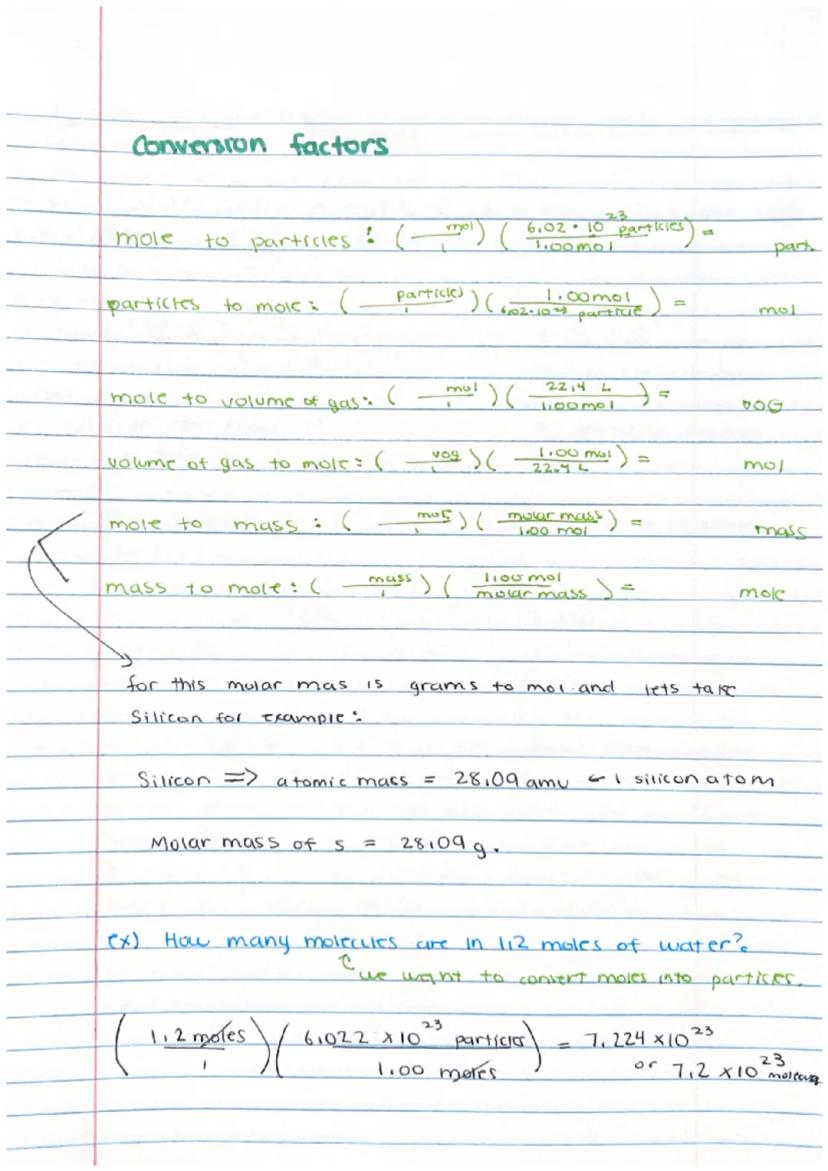 Conversion factors
mole to particles : ( mol / 1 ) ( 6.02 • 10^23 particles / 1.00 mol ) = part.
particles to mole : ( particles / 1 ) ( 1.00 mol / 6.02 • 10^23 particle ) = mol
mole to volume of gas : ( mol / 1 ) ( 22.4 L / 1.00 mol ) = VOG
volume of gas to mole : ( vog / 1 ) ( 1.00 mol / 22.4 L ) = mol
mole to mass : ( mol / 1 ) ( molar mass / 1.00 mol ) = mass
mass to mole : ( mass / 1 ) ( 1.00 mol / molar mass ) = mole
for this molar mas is grams to mol and lets take
Silicon for example :
Silicon => atomic mass = 28.09 amu ← 1 silicon atom
Molar mass of s = 28.09 g.
ex) How many molecules are in 1.2 moles of water?
↑ we want to convert moles into particles.
( 1.2 moles / 1 ) ( 6.022 x 10^23 particles / 1.00 moles ) = 7.224 x 10^23
or 7.2 x 10^23 molecules